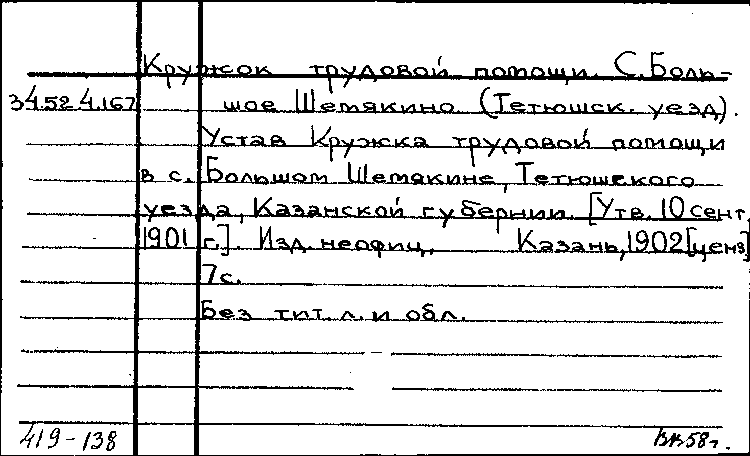 Кружок трудовой помощи. С. Боль-
34.52 4.167 шое Шемякино (Тетюшск. уезд).
Устав Кружка трудовой помощи
в с. Большом Шемякине, Тетюшского
уезда, Казанской губернии. [Утв. 10 сент.
1901 г.]. Изд. неофиц. Казань, 1902 [ценз]
7 с.
Без тит. л. и обл.
419-138